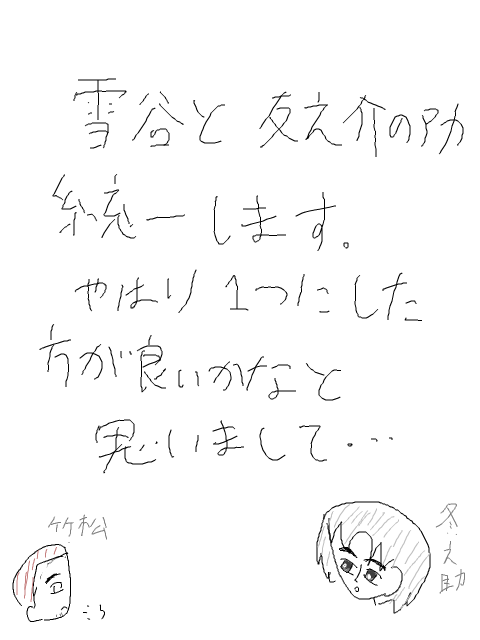 雪谷と友之介の助
統一します。
やはり1つにした
方が良いかなと
思いまして・・・
竹松
冬之助